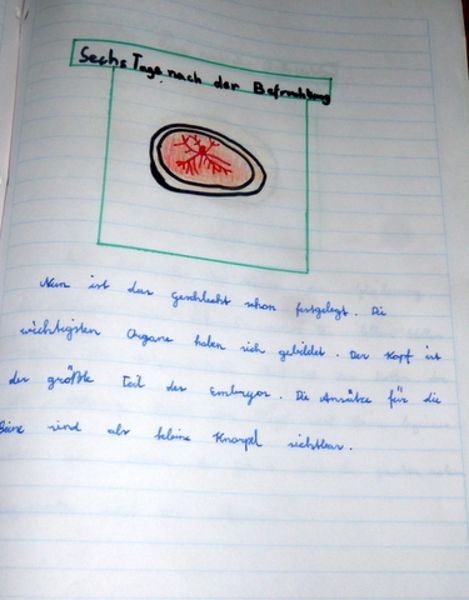 Sechs Tage nach der Befruchtung
Nun ist das Geschlecht schon festgelegt. Die
wichtigsten Organe haben sich gebildet. Der Kopf ist
der größte Teil des Embryos. Die Ansätze für die
Beine sind als kleine Knorpel sichtbar.